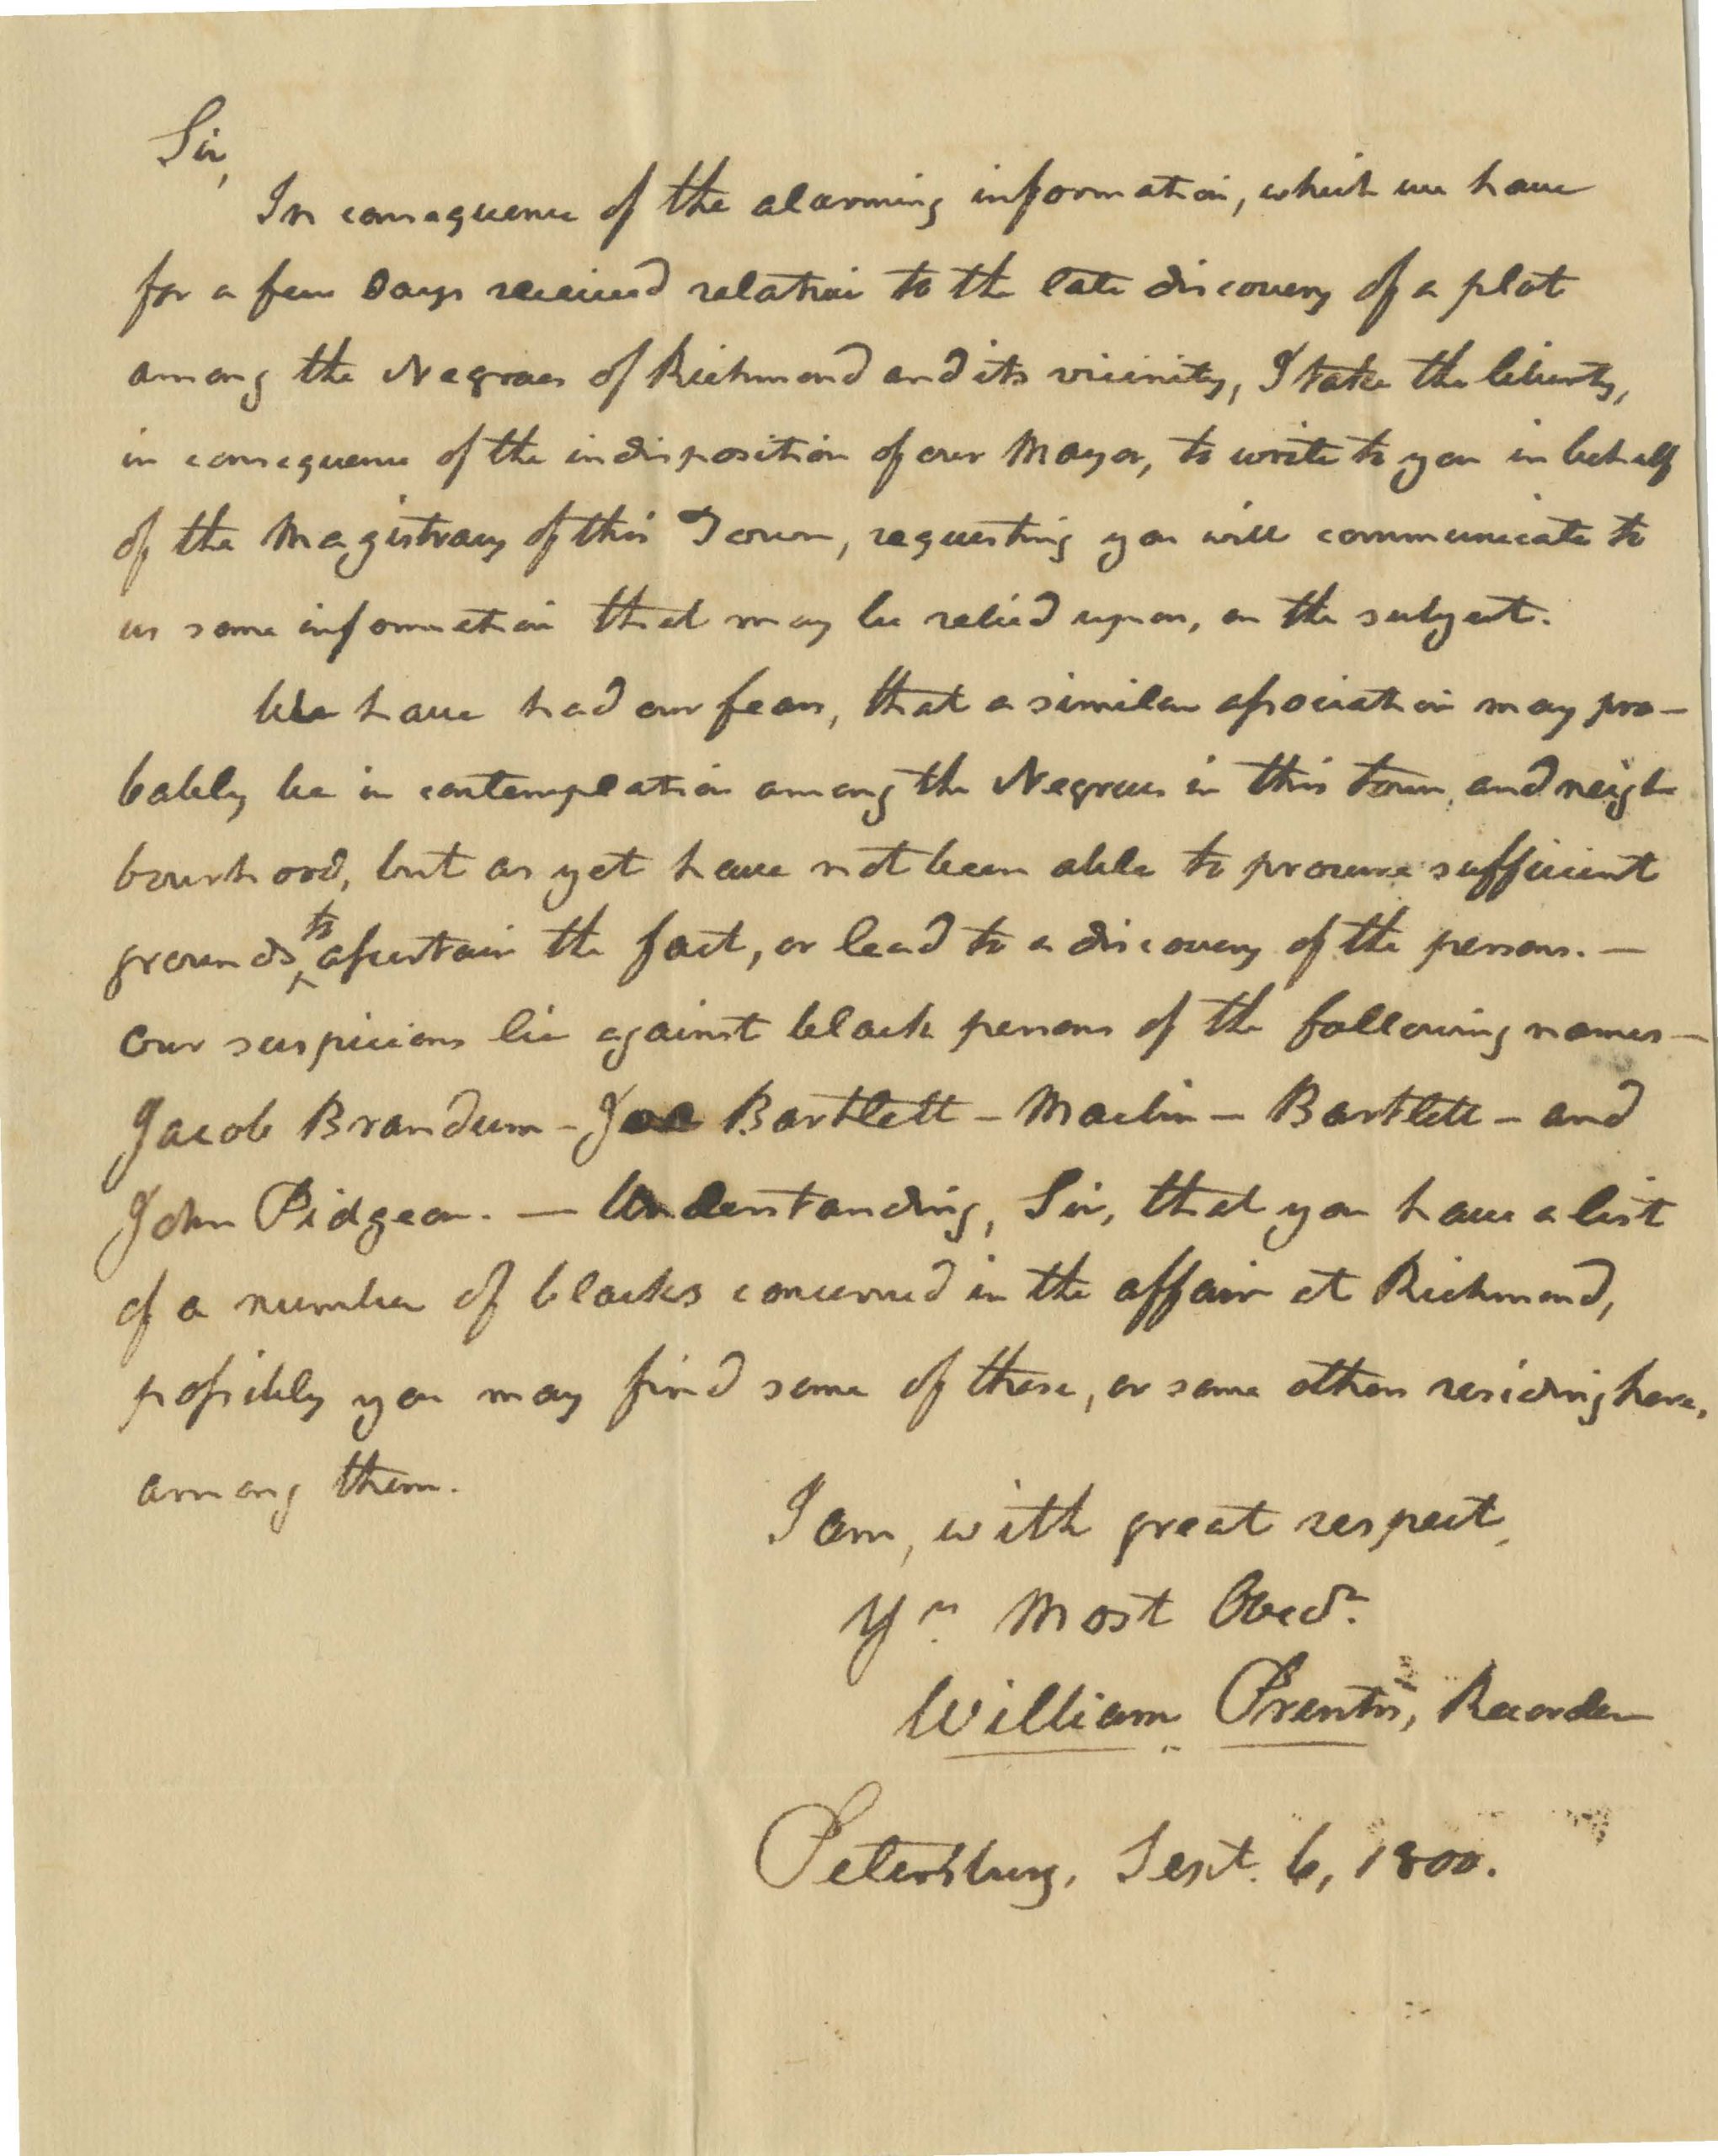 Sir,
In consequence of the alarming information, which we have
for a few Days received relative to the late discovery of a plot
among the Negroes of Richmond and its vicinity, I take the liberty,
in consequence of the indisposition of our Mayor, to write to you in behalf
of the Magistracy of this Town, requesting you will communicate to
us some information that may be relied upon, on the subject.
We have had our fears, that a similar association may pro-
bably be in contemplation among the Negroes in this town, and neigh
bourhood, but as yet have not been able to procure sufficient
grounds to assertain the fact, or lead to a discovery of the persons. —
Our suspicions lie against black persons of the following names —
Jacob Brandum - Joe Bartlett - Maclin - Bartlett - and
John Pidgeon. — Understanding, Sir, that you have a list
of a number of blacks concerned in the affair at Richmond,
possibly you may find some of these, or some others residing here,
among them.
I am, with great respect,
Yr. Most Obedt.
William Prentis, Recorder
Petersburg, Sept. 6, 1800.